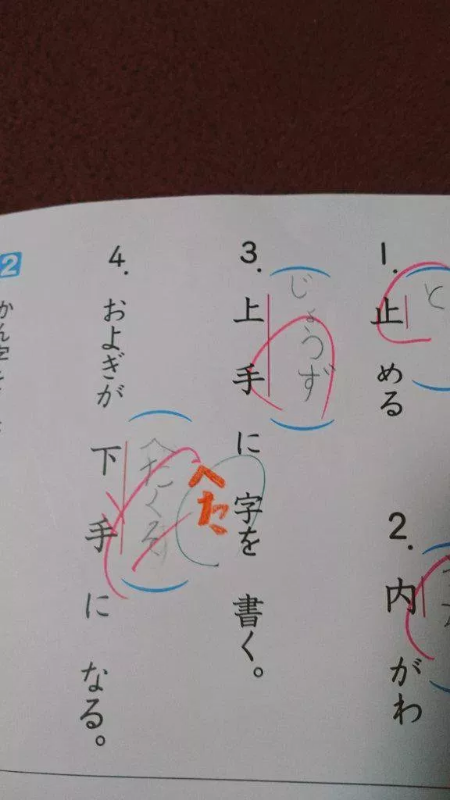 1.
止める
と
2.
内がわ
3.
上手に字を書く。
じょうず
4.
およぎが下手になる。
へたくそ
へた
2